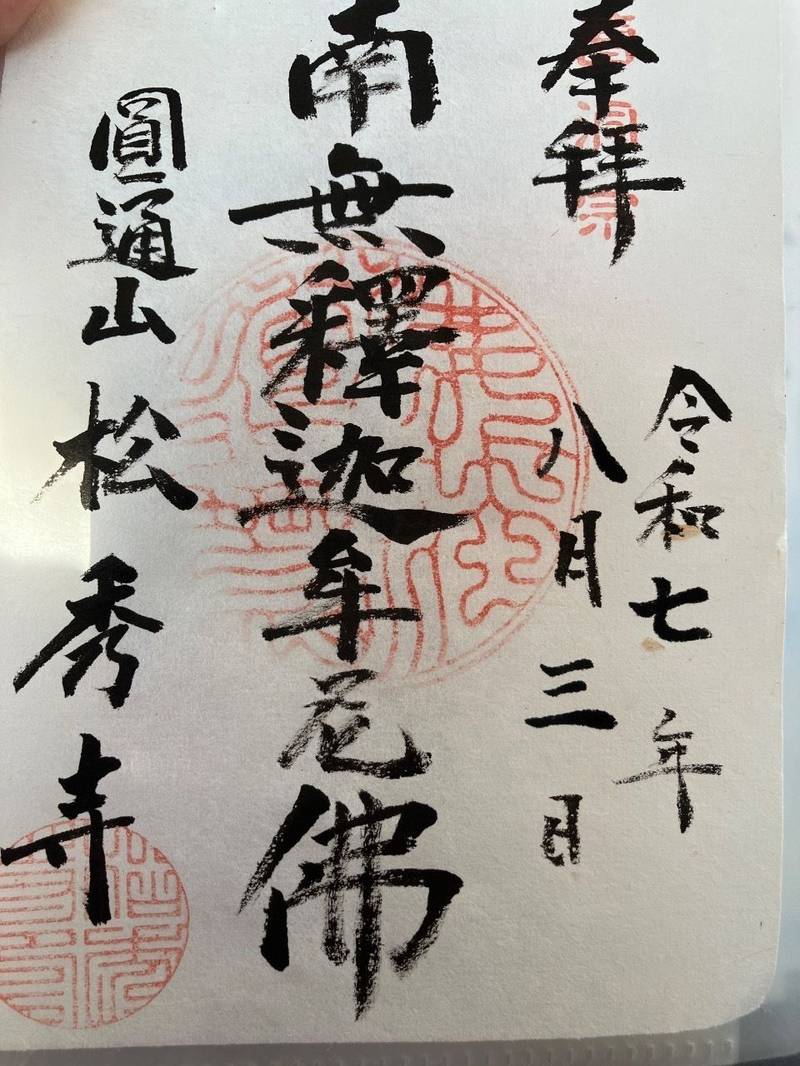 奉拝
令和七年
八月三日
南無釋迦牟尼佛
圓通山松秀寺